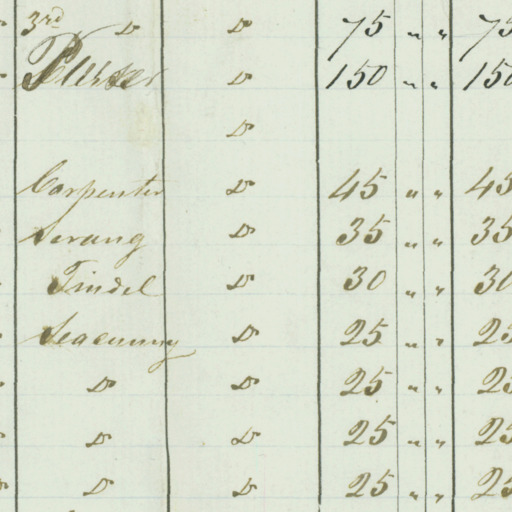 3rd Do Do 75 " " 75
Purser Do 150 " " 150
Do
Carpenter Do 45 " " 45
Serang Do 35 " " 35
Tindel Do 30 " " 30
Seacunny Do 25 " " 25
Do Do 25 " " 25
Do Do 25 " " 25
Do Do 25 " " 25